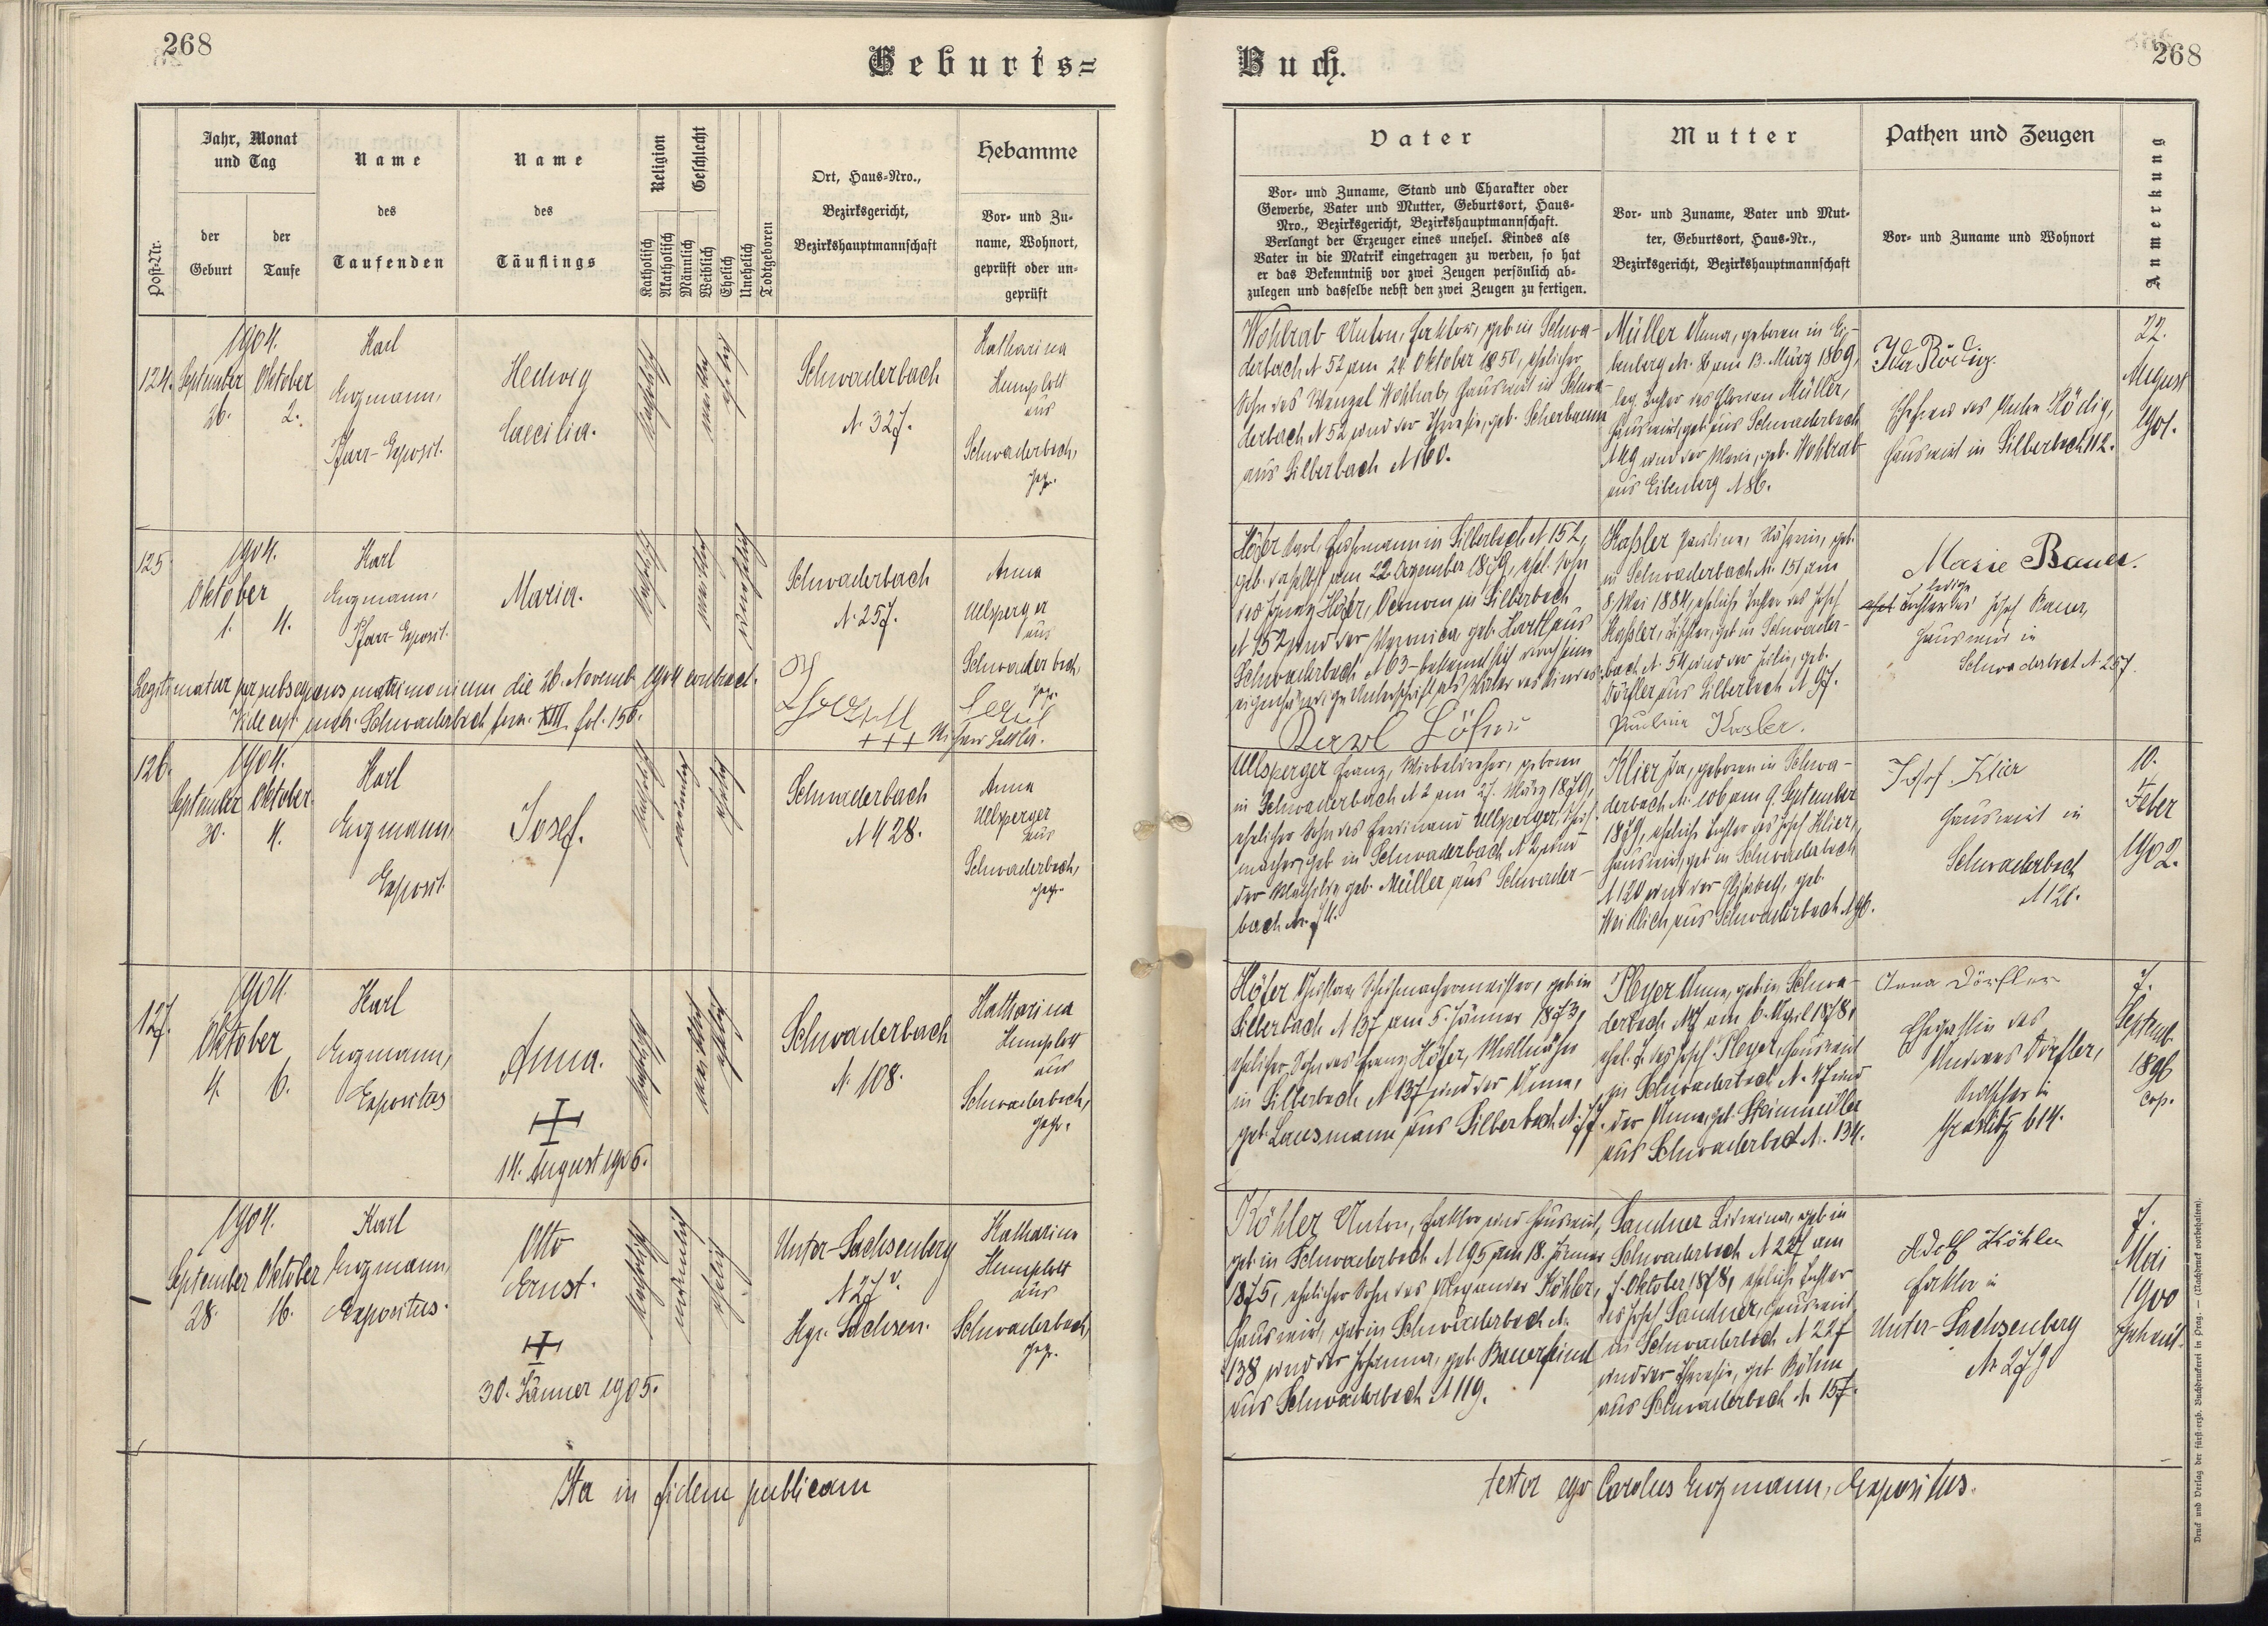 268
Geburts=
Post-Nr.
Jahr, Monat
und Tag
der
Geburt
der
Taufe
Name
des
Taufenden
Name
des
Täuflings
Religion
Katholisch
Akatholisch
Geschlecht
Männlich
Weiblich
Ehelich
Unehelich
Todtgeboren
Ort, Haus=Nro.,
Bezirksgericht,
Bezirkshauptmannschaft
Hebamme
Vor= und Zu=
name, Wohnort,
geprüft oder un=
geprüft
124.
1904.
September
26.
Oktober
2.
Karl
Enzmann,
Pfarr-Exposit.
Hedwig
Caecilia.
katholisch
weiblich
ehelich
Schwaderbach
N. 327.
Katharina
Humplott
aus
Schwaderbach,
gepr.
125
1904.
Oktober
1. 4.
Karl
Enzmann,
Pfarr-Exposit.
Maria.
katholisch
weiblich
unehelich
Schwaderbach
N. 257.
Anna
Uelsperger
aus
Schwaderbach,
gepr.
Legitimatur per subsequens matrimonium die 26. Novemb. 1904 contract.
Vide Schwaderbach tom. XIII. fol. 156.
+++
126.
1904.
September
30.
Oktober
4.
Karl
Enzmann,
Exposit.
Josef.
katholisch
männlich
ehelich
Schwaderbach
N 428.
Anna
Uelsperger
aus
Schwaderbach,
gepr.
127.
1904.
Oktober
4. 6.
Karl
Enzmann,
Expositus
Anna.
14. August 1906.
katholisch
weiblich
ehelich
Schwaderbach
N. 108.
Katharina
Humplott
aus
Schwaderbach,
gepr.
1904.
September
28.
Oktober
16.
Karl
Enzmann,
Expositus.
Otto
Ernst.
30. Jänner 1905.
katholisch
männlich
ehelich
Unter-Sachsenberg
N 27
Kgr. Sachsen.
Katharina
Humplott
aus
Schwaderbach,
gepr.
Ita in fidem publicam
Buch.
268
Vater
Vor= und Zuname, Stand und Charakter oder
Gewerbe, Vater und Mutter, Geburtsort, Haus=
Nro., Bezirksgericht, Bezirkshauptmannschaft.
Verlangt der Erzeuger eines unehel. Kindes als
Vater in die Matrik eingetragen zu werden, so hat
er das Bekenntniß vor zwei Zeugen persönlich ab=
zulegen und dasselbe nebst den zwei Zeugen zu fertigen.
Mutter
Vor= und Zuname, Vater und Mut=
ter, Geburtsort, Haus=Nr.,
Bezirksgericht, Bezirkshauptmannschaft
Pathen und Zeugen
Vor= und Zuname und Wohnort
Anmerkung
Wohlrab Anton, Faktor, geb in Schwa-
derbach N 52 am 24. Oktober 1850, ehelicher
Sohn des Wenzel Wohlrab, Hauswirt in Schwa-
derbach N 52 und der Theresie, geb. Scherbaum
aus Silberbach N 160.
Müller Anna, geboren in Ei-
benberg N. 86 am 13. März 1869,
leg. Tochter des Florian Müller,
Hauswirt, geb aus Schwaderbach
N 49 und der Marie, geb. Wohlrab
aus Eibenberg N 86.
Ida Rödig
Ehefrau des Anton Rödig,
Hauswirt in Silberbach 112.
22.
August
1901.
Höfer Karl, Fuhrmann in Silberbach N 152,
geb. daselbst am 22. Dezember 1879, ehel. Sohn
des Ignaz Höfer, in Silberbach
N 152 und der Veronica, geb. Hartl aus
Schwaderbach N 63 - bekennt sich durch seine
eigenhändige Unterschrift als Vater des Kindes:
Karl Höfer
Kaßler Pauline, Näherin, geb.
in Schwaderbach N. 151 am
8. Mai 1884, eheliche Tochter des Josef
Kaßler, Tischler, geb in Schwader-
bach N. 54 und der Julie, geb.
Dörfler aus Silberbach N 97.
Pauline Kasler.
Marie Bauer.
ledige
Tochter des Josef Bauer,
Hauswirt in
Schwaderbach N. 257.
Uelsperger Franz, Wirbeldreher, geboren
in Schwaderbach N 2 am 27. März 1879,
ehelicher Sohn des Ferdinand Uelsperger, Schuh-
macher, geb in Schwaderbach N 2, und
der Mathilde, geb. Müller aus Schwader-
bach N. 74.
Klier Ida, geboren in Schwa-
derbach N. 106 am 9. September
1879, eheliche Tochter des Josef Klier,
Hauswirt, geb in Schwaderbach
N 120 und der Elisabeth, geb.
Weidlich aus Schwaderbach N 96.
Josef Klier
Hauswirt in
Schwaderbach
N 120.
10.
Feber
1902.
Höfer Gustav, Schuhmachermeister, geb in
Silberbach N 137 am 5. Jänner 1873,
ehelicher Sohn des Franz Höfer,
in Silberbach N 137 und der Anna,
geb. Lausmann aus Silberbach N. 77.
Pleyer Anna, geb in Schwa-
derbach N 47 am 6. April 1878,
ehel. T. des Josef Pleyer, Hauswirt
in Schwaderbach N. 47 und
der Anna, geb. Steinmüller
aus Schwaderbach N. 134.
Anna Dörfler
Ehegattin des
Andreas Dörfler,
Kutscher in
Graslitz 614.
7.
Septemb.
1896
Cop.
Köhler Anton, Faktor und Hauswirt,
geb. in Schwaderbach N 195 am 18. Jänner
1875, ehelicher Sohn des Alexander Köhler,
Hauswirt, geb in Schwaderbach N.
138 und der Johanna, geb. Bauerfeind
aus Schwaderbach N 119.
Sandner Lidwina, geb in
Schwaderbach N 227 am
7. Oktober 1878, eheliche Tochter
des Josef Sandner, Hauswirt
in Schwaderbach N 227
und der Theresie, geb. Böhm
aus Schwaderbach N. 157.
Adolf Köhler
Faktor in
Unter-Sachsenberg
N. 27
7.
Mai
1900
getraut.
testor ego Carolus Enzmann, Expositus.
Druck und Verlag der fürst-erzb. Buchdruckerei in Prag. — (Nachdruck vorbehalten).